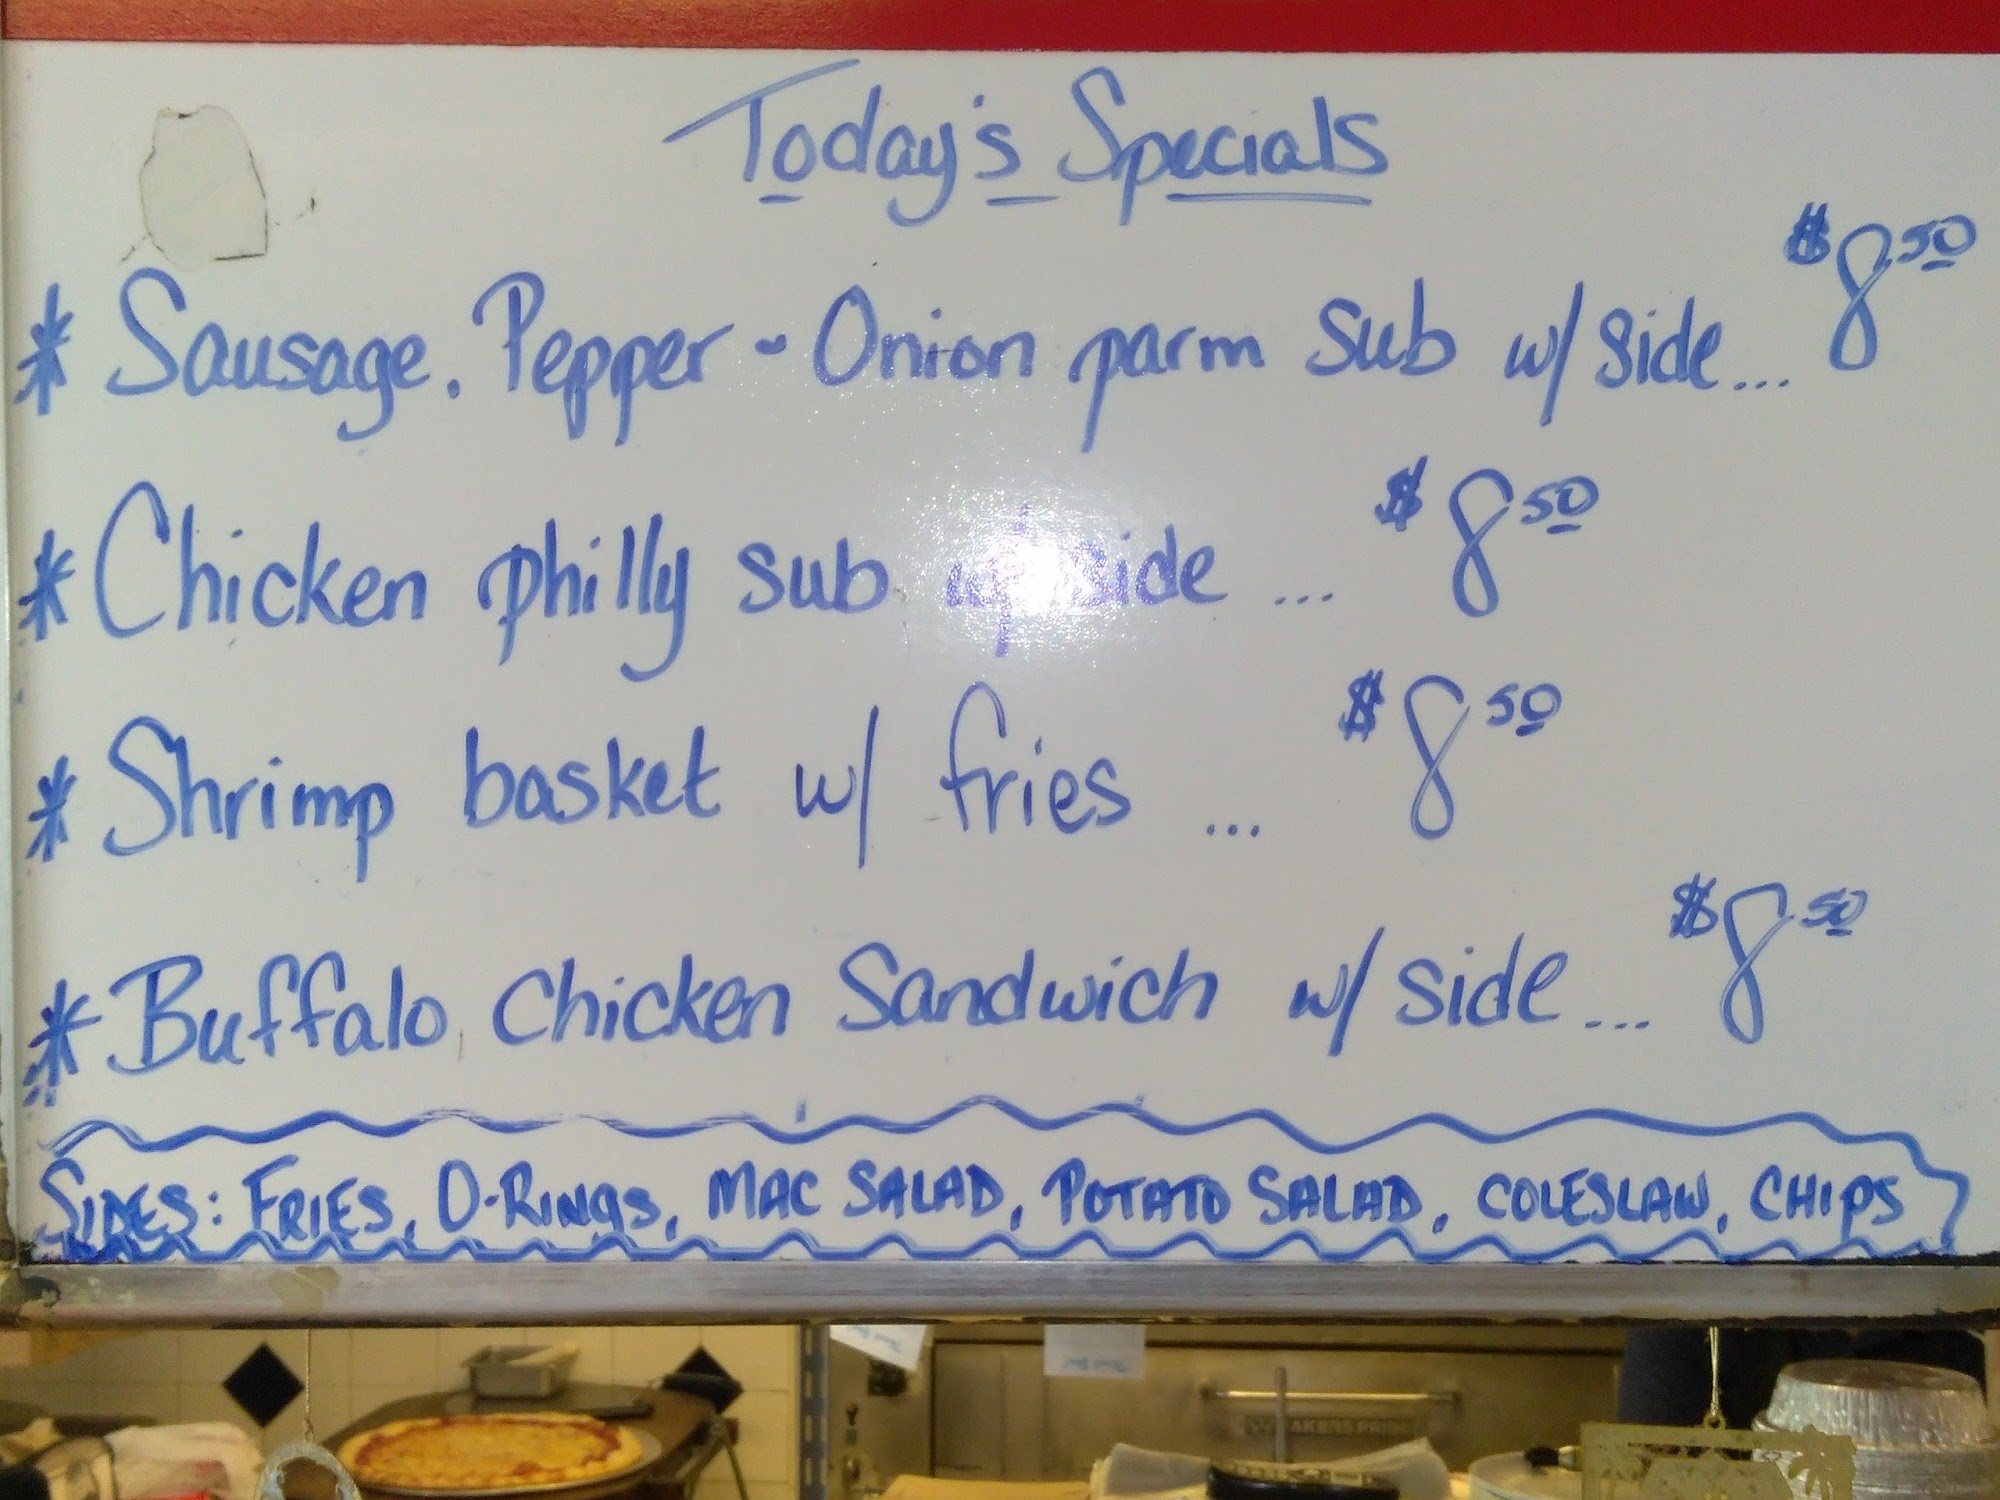 Today's Specials
* Sausage, Pepper - Onion parm sub w/ side... $8.50
* Chicken philly sub w/ side ... $8.50
* Shrimp basket w/ fries ... $8.50
* Buffalo Chicken Sandwich w/ side... $8.50
SIDES: FRIES, O-RINGS, MAC SALAD, POTATO SALAD, COLESLAW, CHIPS
BAKERS PRIDE